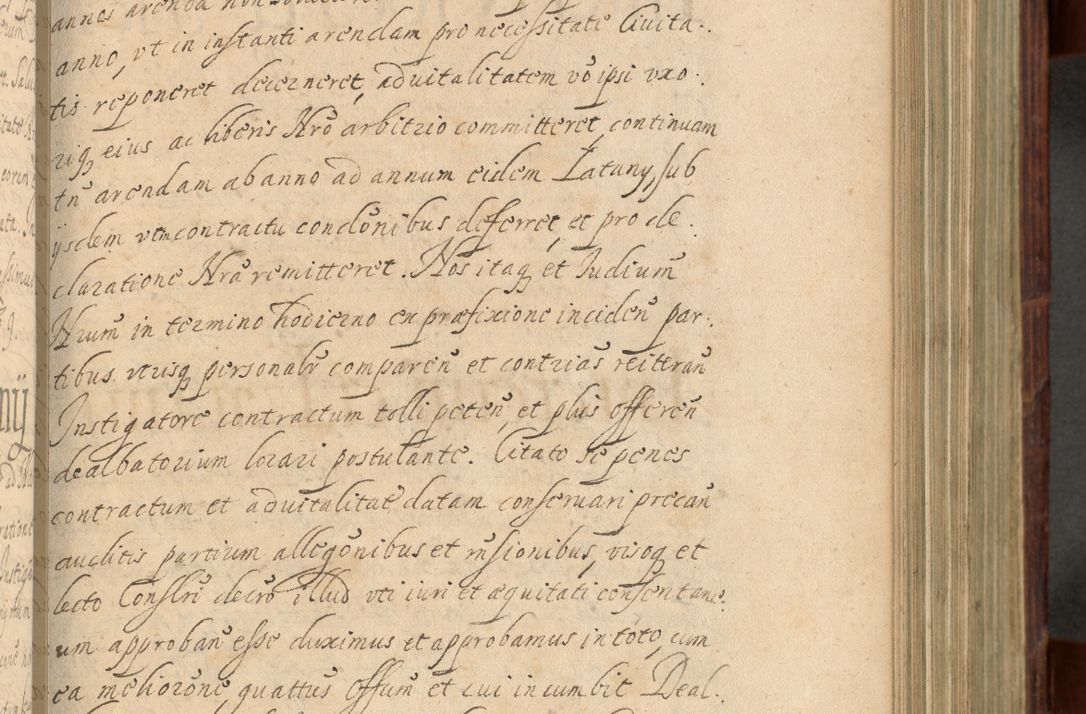 annos arenda non
anno, vt in instanti arendam pro necessitate Ciuita.
tis reponeret decerneret, aduitalitatem vō ipsi vxo.
riq eius ac liberis Nrō arbitrio committeret, continuam
tn̄ arendam ab anno ad annum eidem Łatuny, sub
ijsdem vt in contractu condōnibus deferret, et pro de.
claratione Nrā remitteret. Nos itaq et Iudium̄
Nrum̄ in termino hodierno ex præfixione inciden̄ par.
tibus vtrisq personalr̄ comparen̄ et contrias reitteran̄
Instigatore contractum tolli peten̄, et plus offeren̄
dealbatorium locari postulante. Citato se penes
contractum et aduitalitatē datam conseruari precan̄
auditis partium allegōnibus et rn̄sionibus, visoq et
lecto Conslri decrō illud vti iuri et æquitati consentane.
um approban̄ esse duximus et approbamus in toto, cum
ea meliorōne, quattus Offum̄ et cui incumbit Deal.